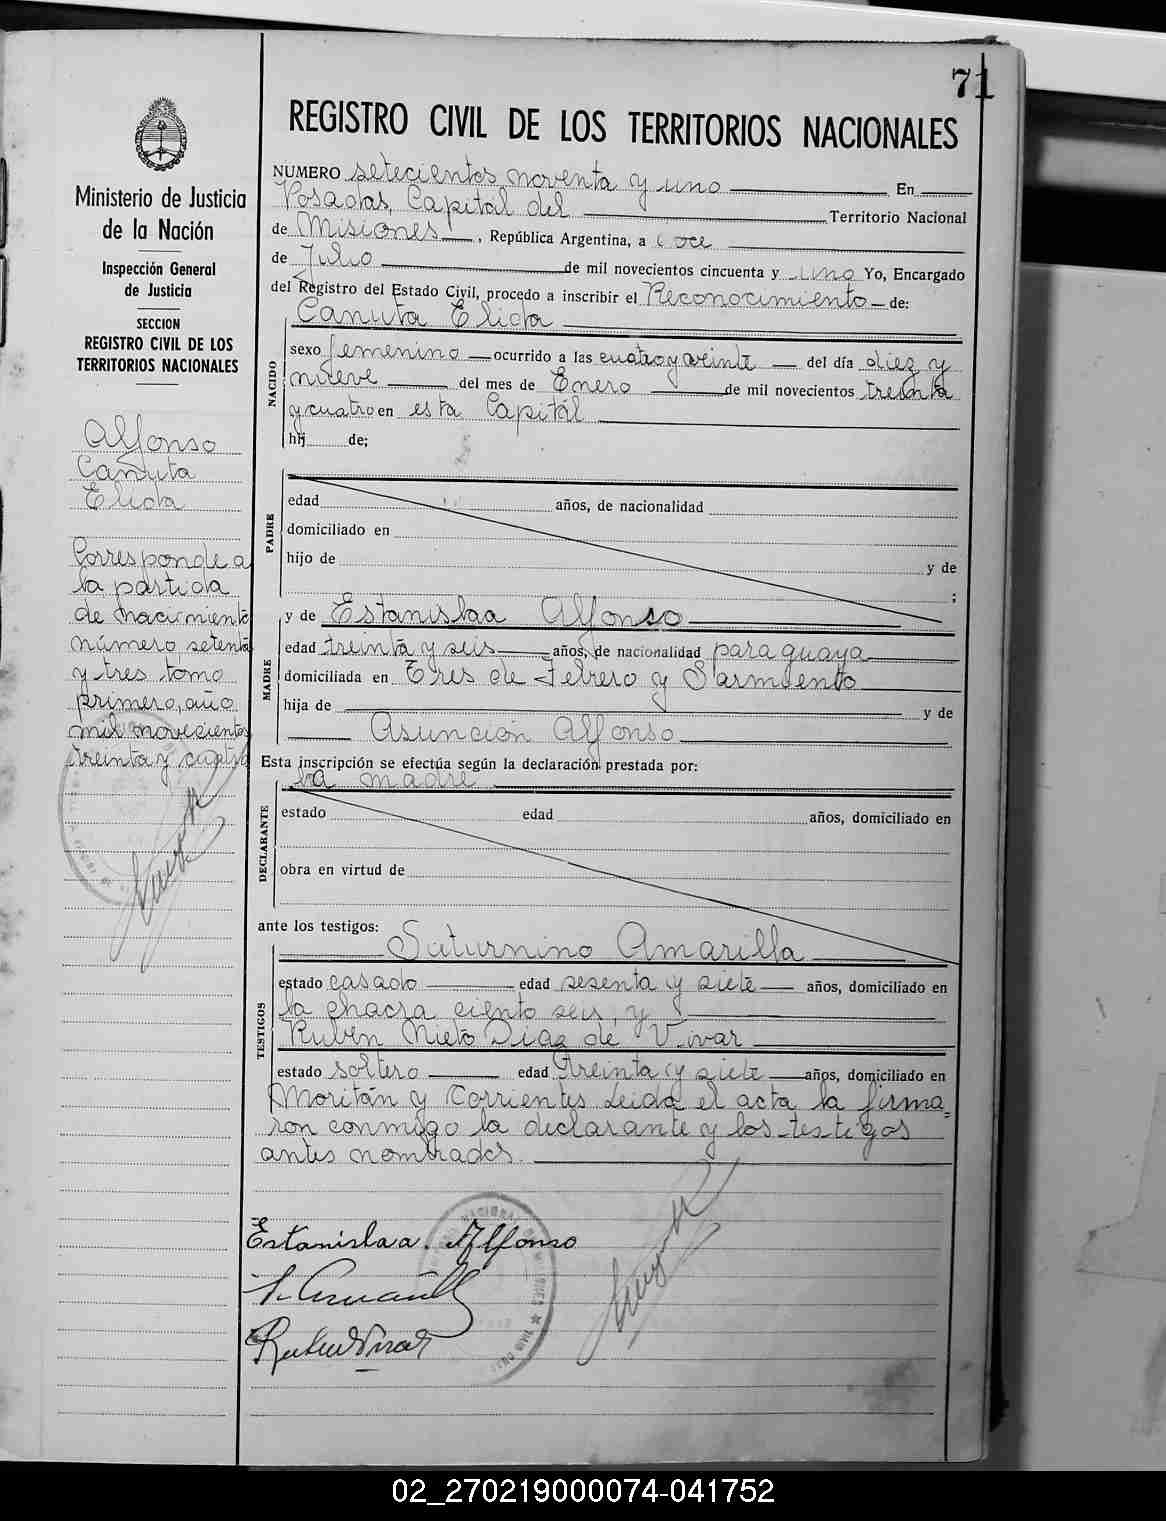 71
REGISTRO CIVIL DE LOS TERRITORIOS NACIONALES
Ministerio de Justicia
de la Nación
Inspección General
de Justicia
SECCION
REGISTRO CIVIL DE LOS
TERRITORIOS NACIONALES
Alfonso
Canuta
Elida
Corresponde a
la partida
de nacimiento
número setenta
y tres, tomo
primero, año
mil novecientos
treinta y cuatro
NUMERO setecientos noventa y uno En
Posadas, Capital del Territorio Nacional
de Misiones, República Argentina, a doce
de Julio de mil novecientos cincuenta y uno Yo, Encargado
del Registro del Estado Civil, procedo a inscribir el Reconocimiento de:
Canuta Elida
NACIDO
sexo femenino ocurrido a las cuatro y veinte del día diez y
nueve del mes de Enero de mil novecientos treinta
y cuatro en esta Capital
hij de;
PADRE
edad años, de nacionalidad
domiciliado en
hijo de y de
;
y de Estanislaa Alfonso
MADRE
edad treinta y seis años, de nacionalidad paraguaya
domiciliada en Tres de Febrero y Sarmiento
hija de y de
Asunción Alfonso
Esta inscripción se efectúa según la declaración prestada por:
la madre
DECLARANTE
estado edad años, domiciliado en
obra en virtud de
ante los testigos:
Saturnino Amarilla
TESTIGOS
estado casado edad sesenta y siete años, domiciliado en
la chacra ciento seis, y
Rubén Nieto Diaz de Vivar
estado soltero edad treinta y siete años, domiciliado en
Moritán y Corrientes Leida el acta la firma=
ron conmigo la declarante y los testigos
antes nombrados.
Estanislaa. Alfonso
02_270219000074-041752